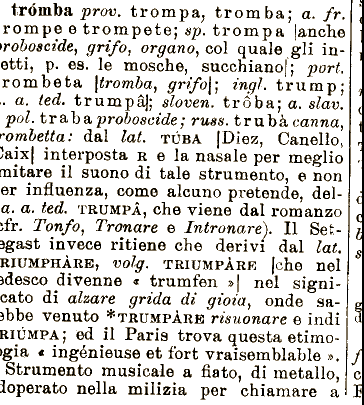 trómba prov. trompa, tromba; a. fr.
rompe e trompete; sp. trompa |anche
proboscide, grifo, organo, col quale gli in-
etti, p. es. le mosche, succhiano|; port.
rombeta |tromba, grifo|; ingl. trump;
. a. ted. trumpâ|; sloven. trôba; a. slav.
pol. traba proboscide; russ. trubà canna,
rombetta: dal lat. TÙBA |Diez, Canello,
Caix| interposta R e la nasale per meglio
mitare il suono di tale strumento, e non
er influenza, come alcuno pretende, del-
a. a. ted. TRUMPÂ, che viene dal romanzo
cfr. Tonfo, Tronare e Intronare). Il Set-
egast invece ritiene che derivi dal lat.
TRIUMPHÀRE, volg. TRIUMPÀRE |che nel
edesco divenne « trumfen »| nel signi-
cato di alzare grida di gioia, onde sa-
ebbe venuto *TRUMPÀRE risuonare e indi
TRIÚMPA; ed il Paris trova questa etimo-
ogia « ingénieuse et fort vraisemblable ».
Strumento musicale a fiato, di metallo,
doperato nella milizia per chiamare a